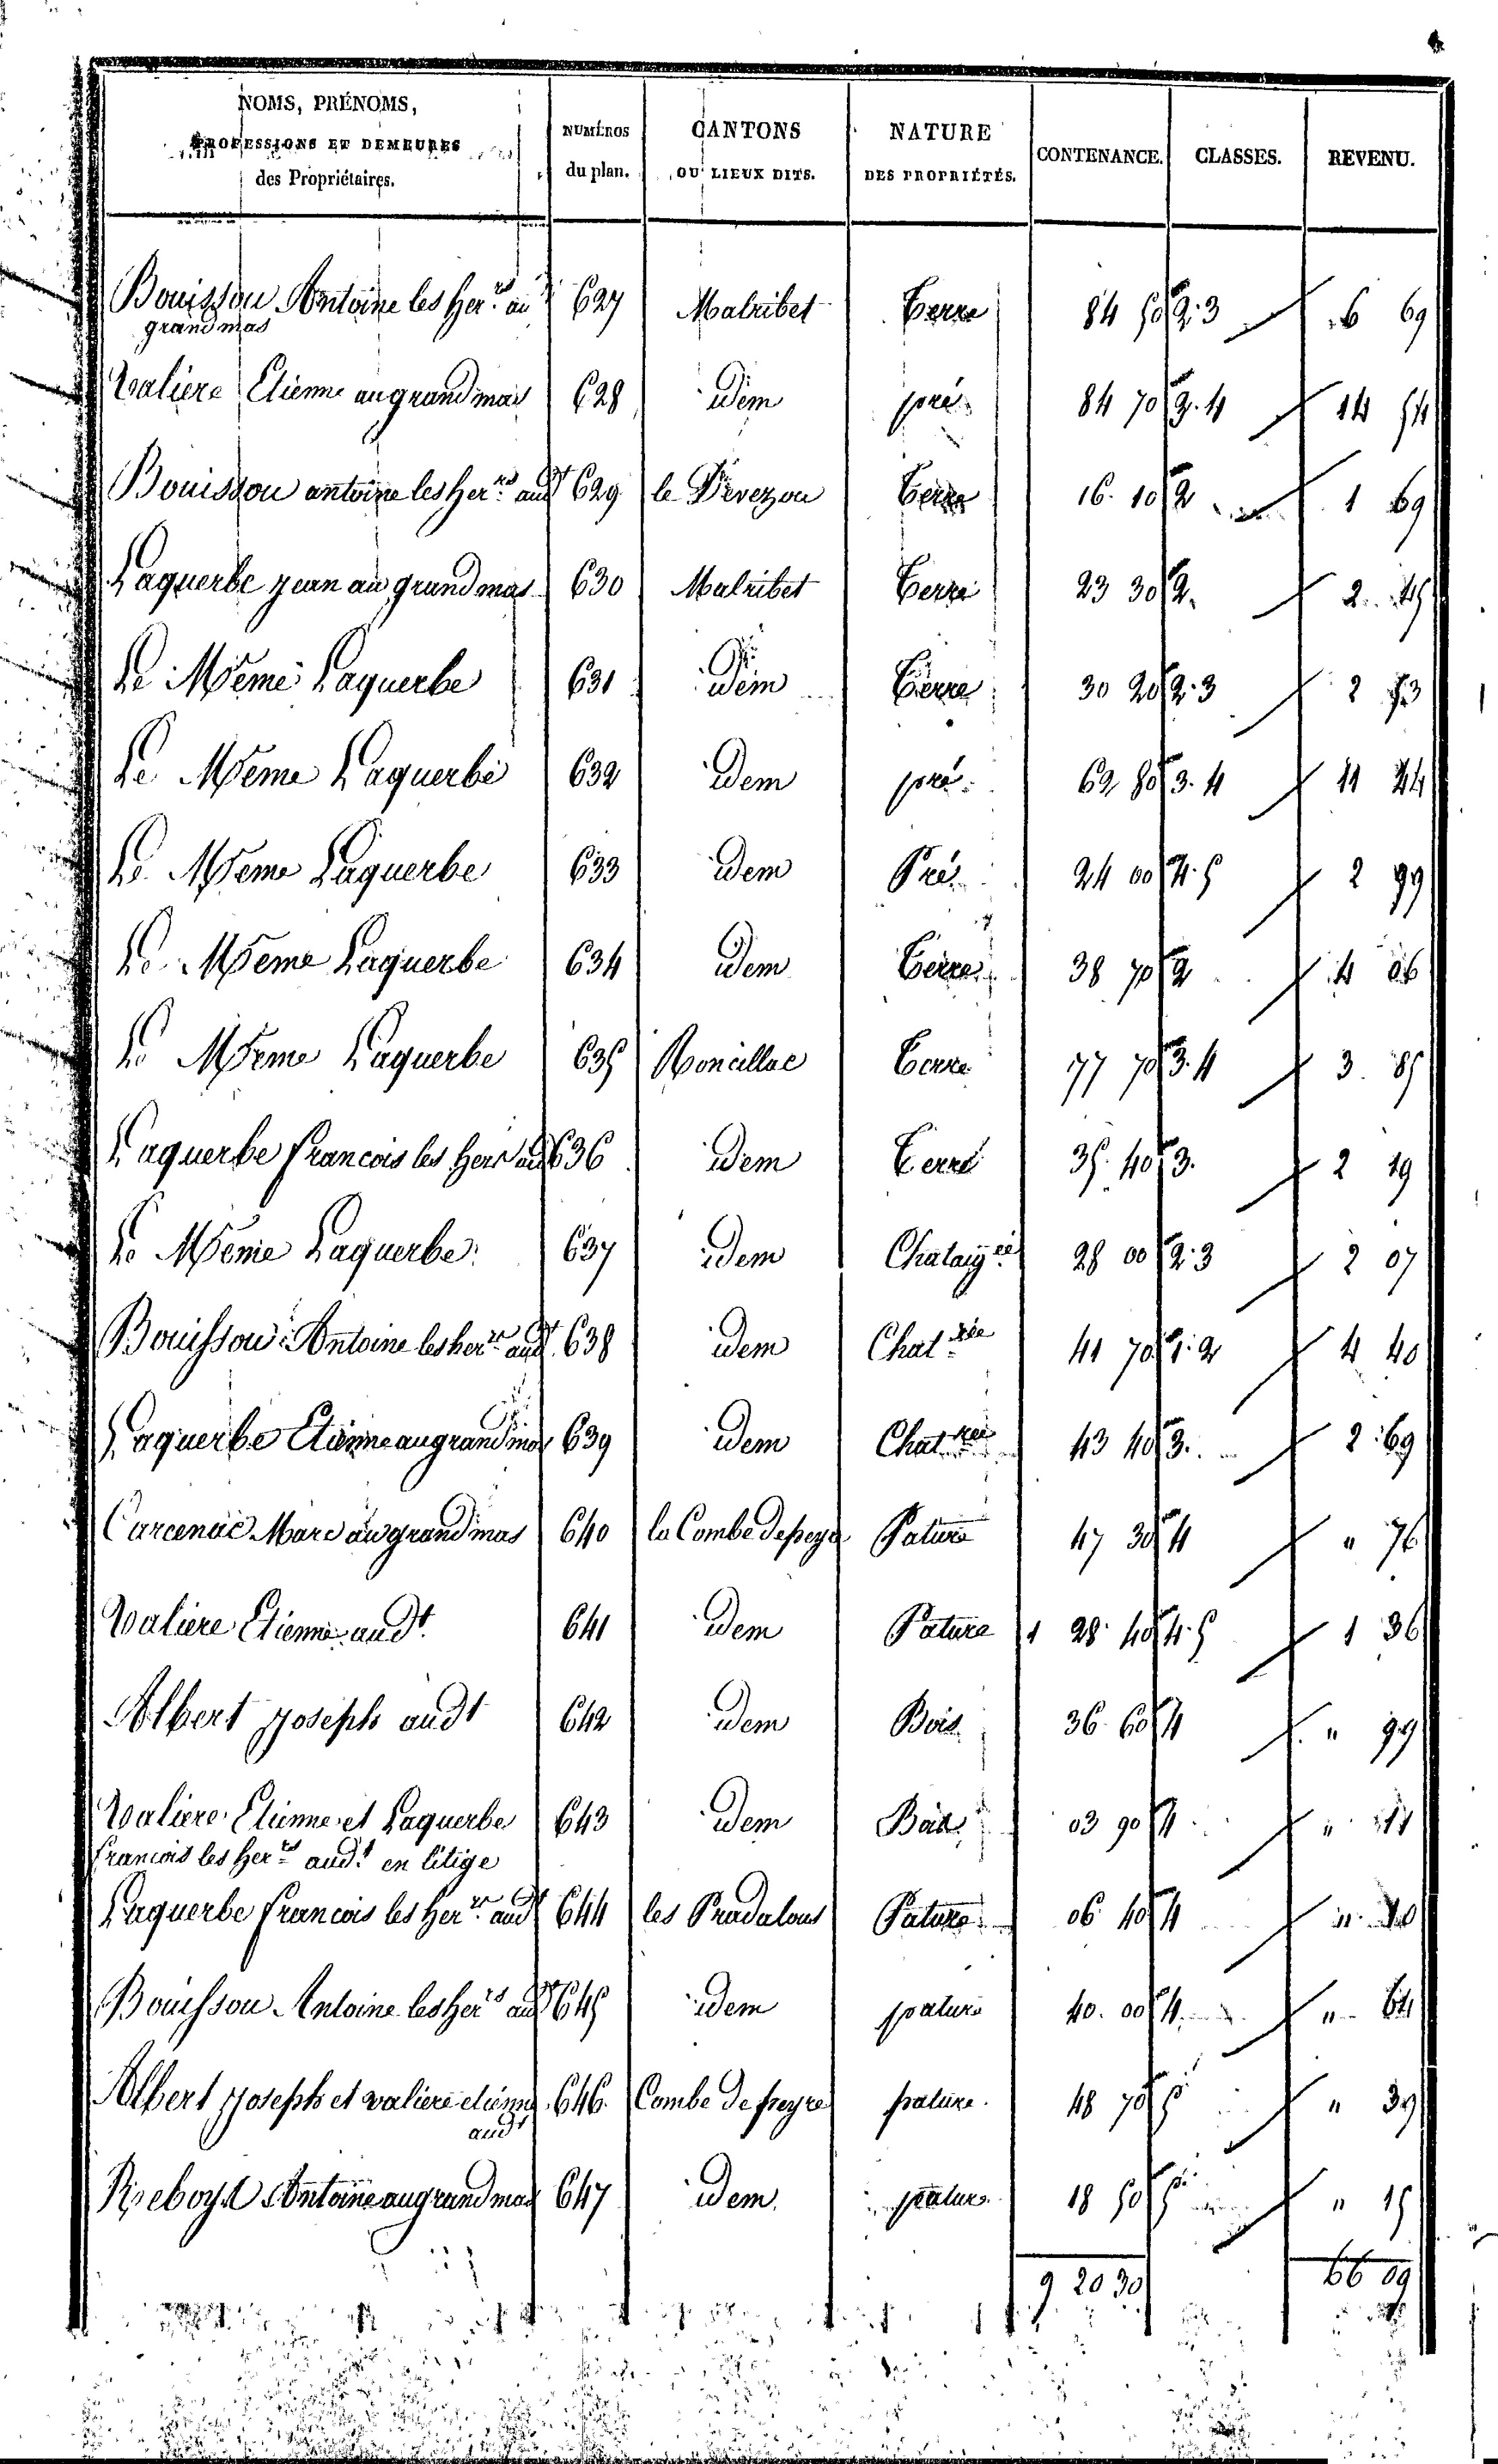 NOMS, PRÉNOMS, PROFESSIONS ET DEMEURES des Propriétaires. | NUMÉROS du plan. | CANTONS OU LIEUX DITS. | NATURE DES PROPRIÉTÉS. | CONTENANCE. | CLASSES. | REVENU.
Bouissou Antoine les Her.rs au 627 Malribet Terre 84 50 2.3 6 69
grand mas
Valiere Etienne au grand mas 628 idem pré 84 70 3.4 14 54
Bouissou antoine les Her.rs audt 629 le Devezou Terre 16 10 2 1 69
Laquerbe jean au grand mas 630 Malribet Terre 23 30 2. 2 45
Le Meme Laquerbe 631 idem Terre 30 20 2.3 2 73
Le Meme Laquerbe 632 idem pré 62 80 3.4 11 44
Le Meme Laquerbe 633 idem Pré 24 00 4.5 2 99
Le Meme Laquerbe 634 idem Terre 38 70 2 4 06
Le Meme Laquerbe 635 Roncillac Terre 77 70 3.4 3 85
Laquerbe francois les Hers au 636 idem Terre 35 40 3. 2 19
Le Meme Laquerbe 637 idem Chataig.ée 28 00 2.3 2 07
Bouissou Antoine les her.rs audt 638 idem Chat.rée 41 70 1.2 4 40
Laquerbe Etienne au grand mas 639 idem Chat.rée 43 40 3. 2 69
Carcenac Marc au grand mas 640 la Combe de peyre Pature 47 30 4 " 76
Valiere Etienne audt. 641 idem Pature 1 28 40 4.5 1 36
Albert joseph audt 642 idem Bois 36 60 4 " 99
Valiere Etienne et Laquerbe 643 idem Bois 03 90 4 " 11
francois les Her.rs audt en litige
Laquerbe francois les Her.rs audt 644 les Pradalous Pature 06 40 4 " 10
Bouissou Antoine les Hers audt 645 idem pature 40 00 4. " 64
Albert joseph et valiere etienne 646 Combe de peyre pature 48 70 5 " 39
audt
Reboys Antoine au grand mas 647 idem pature 18 50 5 " 15
9 20 30 66 09